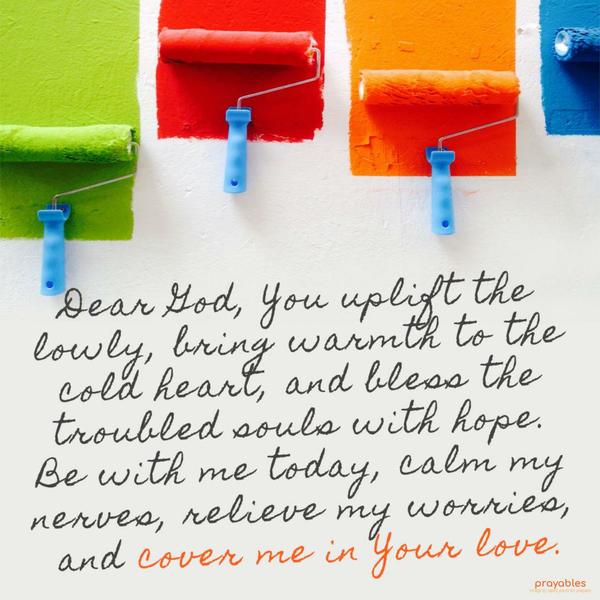 Dear God, You uplift the
lowly, bring warmth to the
cold heart, and bless the
troubled souls with hope.
Be with me today, calm my
nerves, relieve my worries,
and cover me in Your love.
prayables